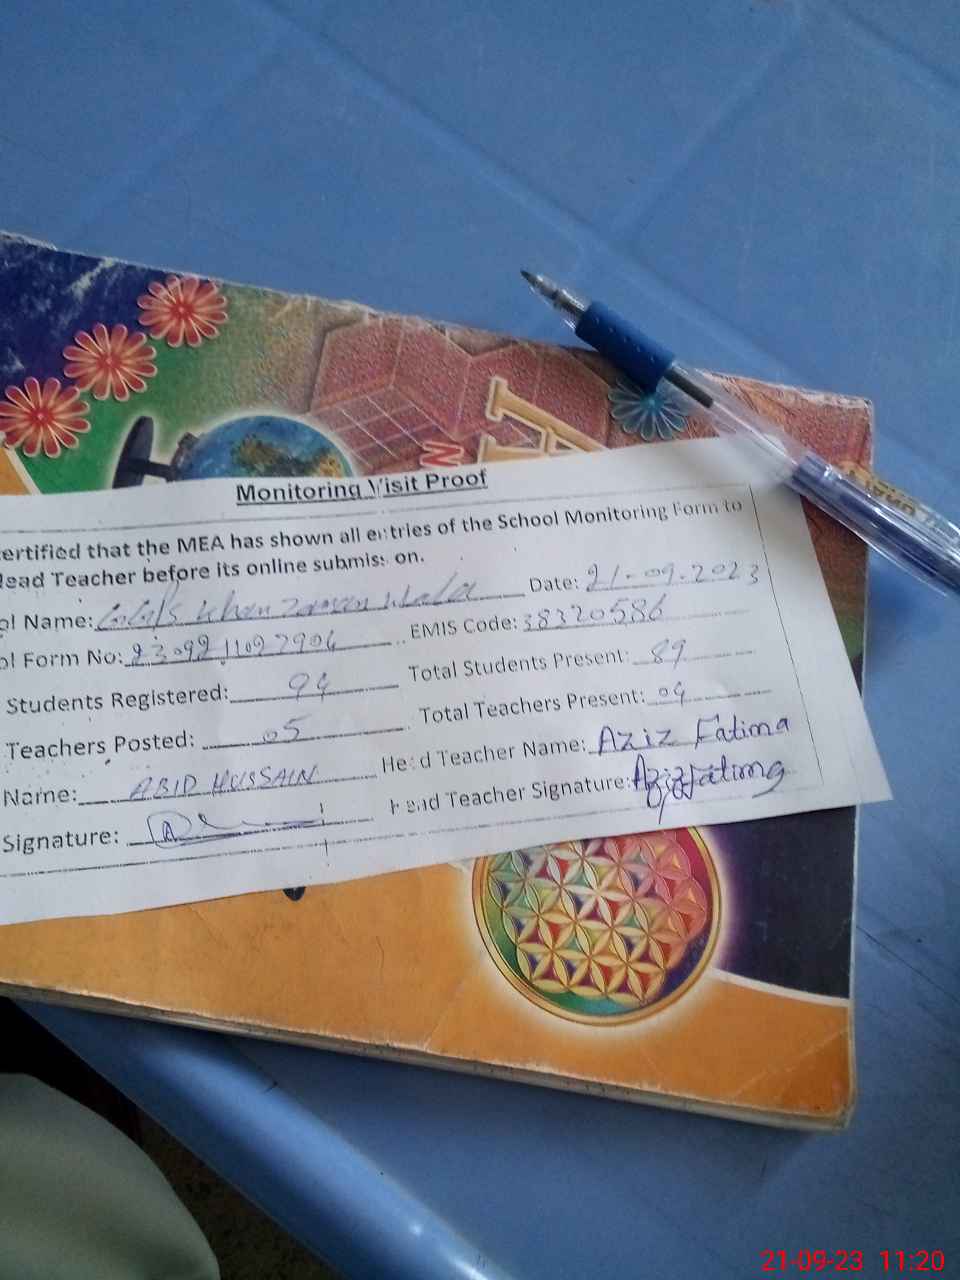 Monitoring Visit Proof
ertified that the MEA has shown all entries of the School Monitoring Form to
lead Teacher before its online submission.
ol Name: Khan Zaman Wala Date: 21-09-2023
ol Form No: EMIS Code: 38320586
Students Registered: 94 Total Students Present: 89
Teachers Posted: 05 Total Teachers Present: 04
Name: ABID HUSSAIN Head Teacher Name: Aziz Fatima
Signature: Head Teacher Signature: Aziz Fatima
21-09-23 11:20